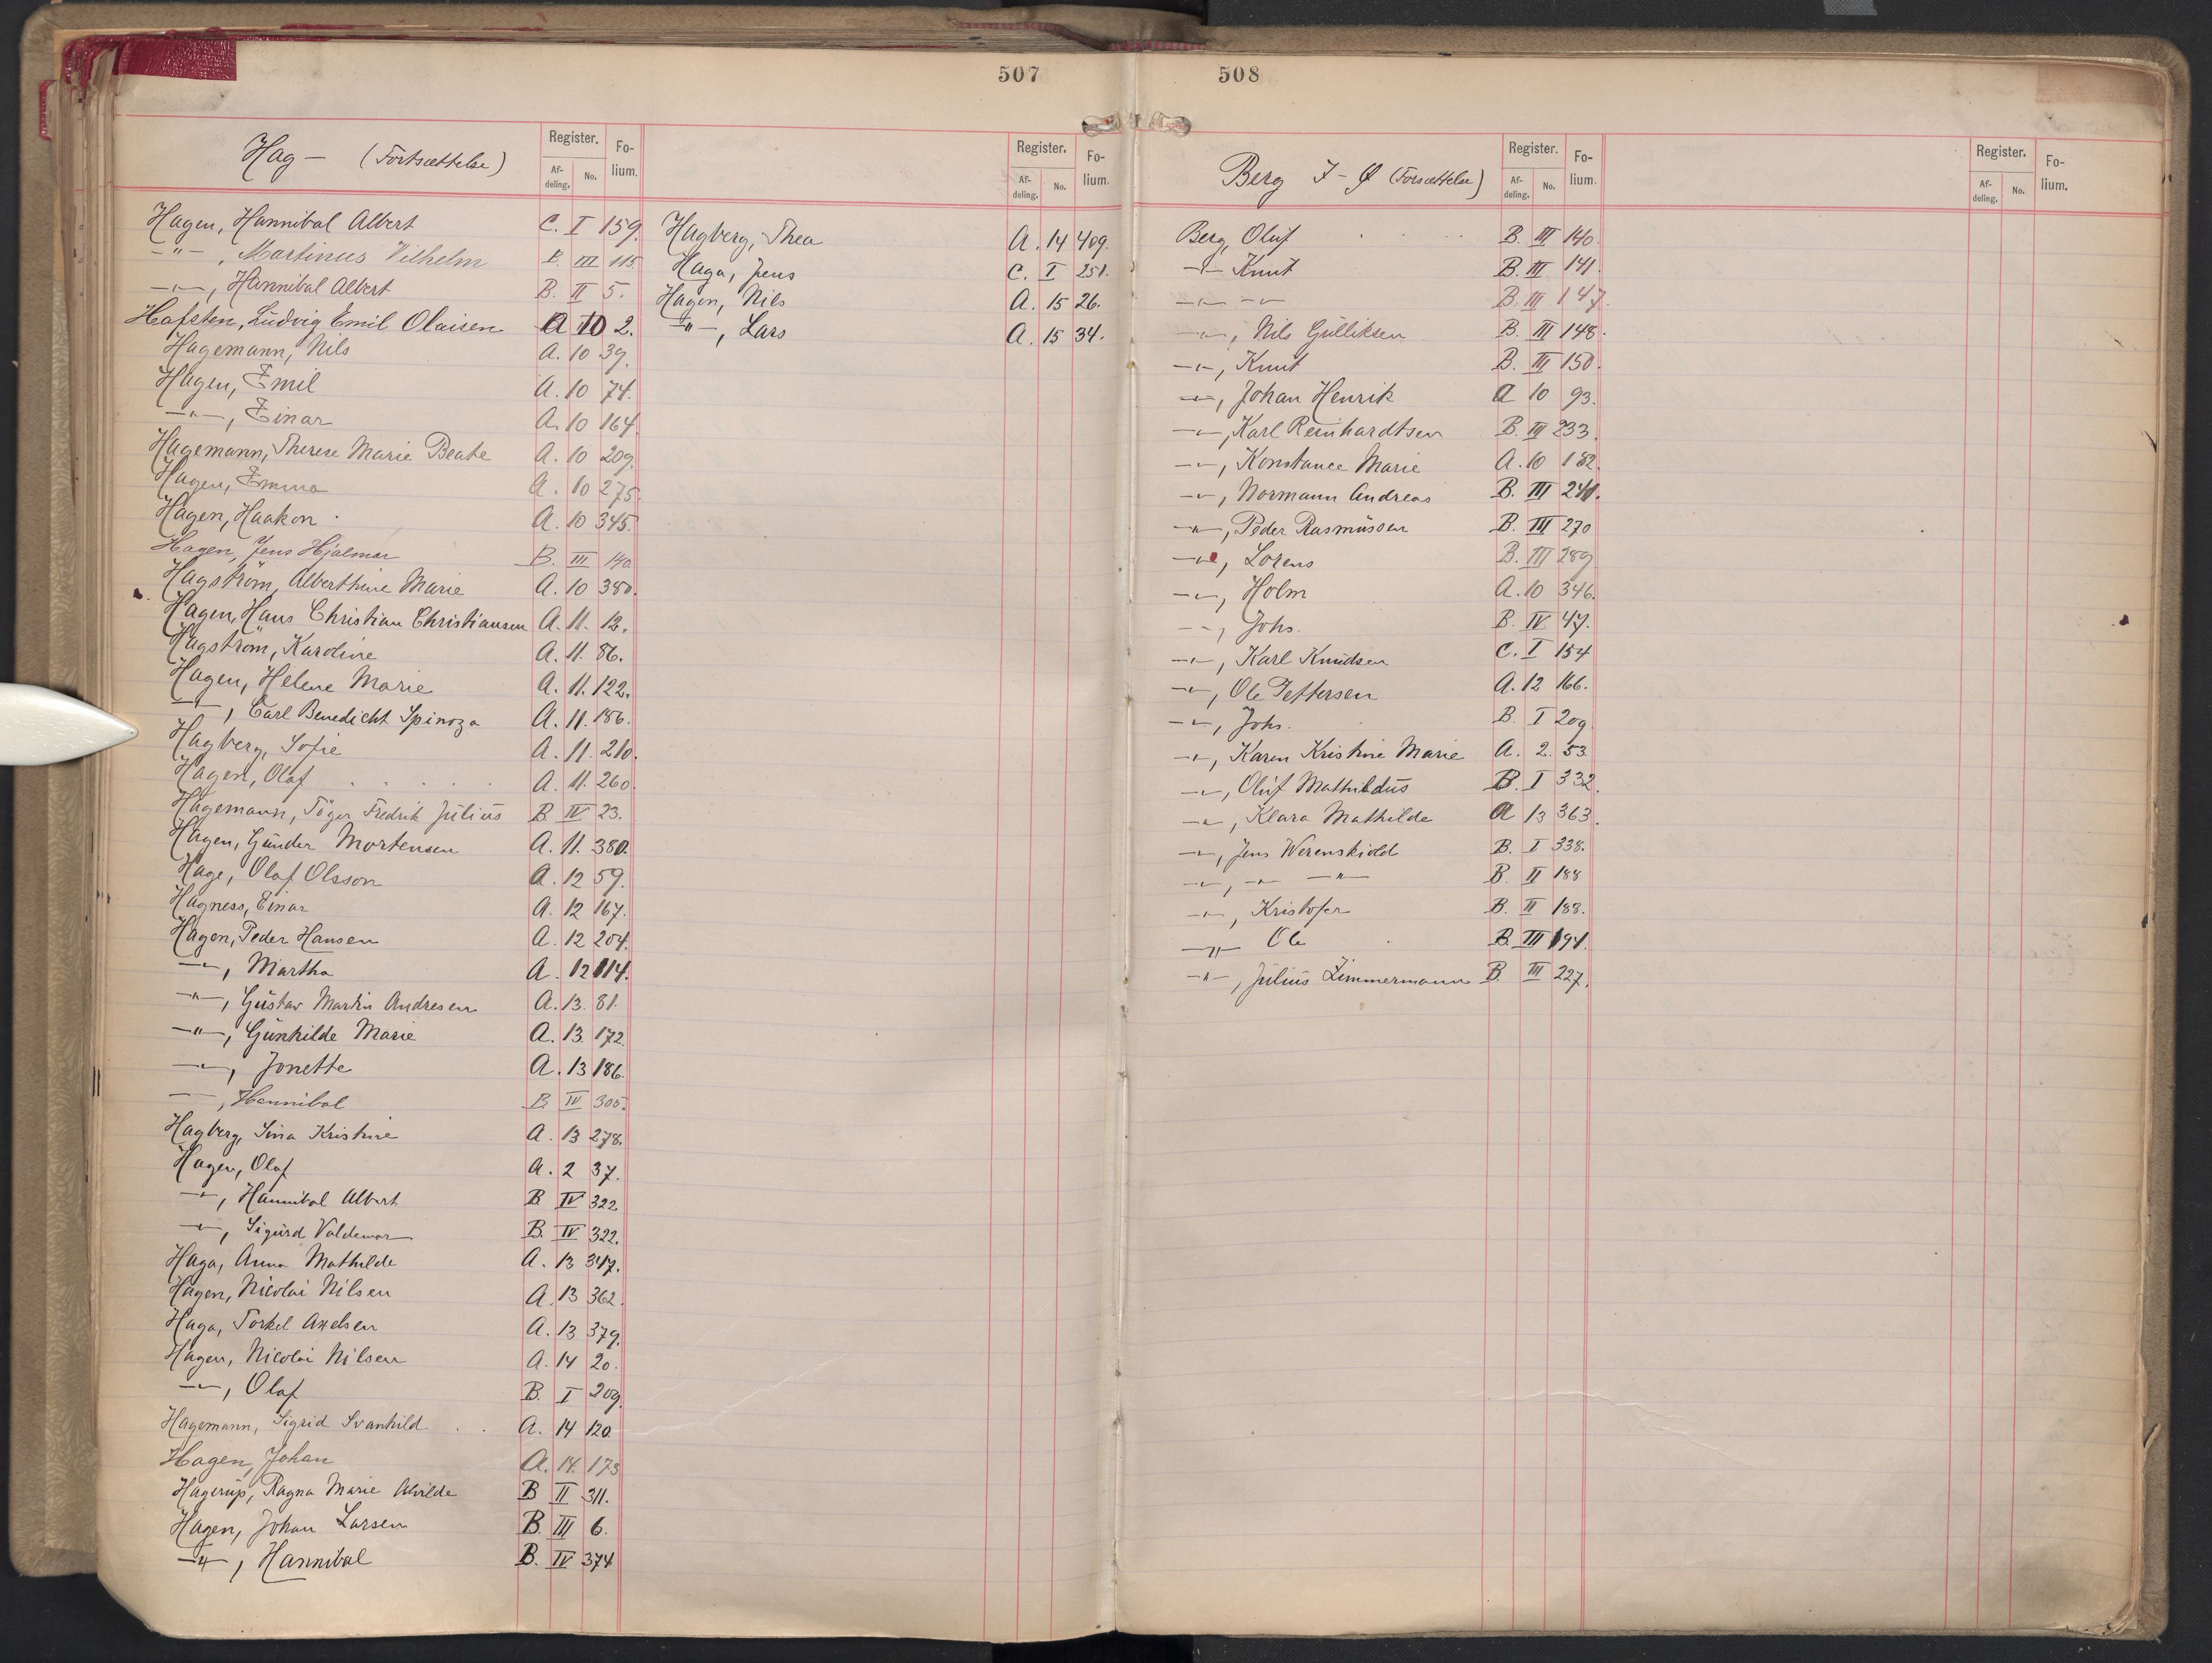 507
Hag — (Fortsættelse)
Register. Afdeling. No. Folium.
Register. Afdeling. No. Folium.
Hagen, Hannibal Albert C. I 159.
—"—, Martinus Vilhelm B. III 115
—"—, Hannibal Albert B. II 5.
Hafsten, Ludvig Emil Olaisen A 10 2.
Hagemann, Nils A. 10 39.
Hagen, Emil A. 10 74.
—"—, Einar A. 10 164.
Hagemann, Therese Marie Beate A. 10 209.
Hagen, Emma A. 10 275.
Hagen, Haakon A. 10 345.
Hagen, Jens Hjalmar B. III 140
Hagström, Alberthine Marie A. 10 380.
Hagen, Hans Christian Christiansen A. 11. 12.
Hagström, Karoline A. 11. 86.
Hagen, Helene Marie A. 11. 122.
—"—, Carl Benedicht Spinoza A. 11. 186.
Hagberg, Sofie A. 11. 210.
Hagen, Olaf A. 11. 260.
Hagemann, Töger Fredrik Julius B IV 23.
Hagen, Gunder Mortensen A. 11. 380.
Hage, Olaf Olsson A. 12 59.
Hagness, Einar A. 12 167.
Hagen, Peder Hansen A. 12 204.
—"—, Martha A. 12 114.
—"—, Gustav Martin Andresen A. 13. 81.
—"—, Gunhilde Marie A. 13. 172.
—"—, Jonette A. 13 186.
—"—, Hannibal B IV 305.
Hagberg, Sina Kristine A. 13 278.
Hagen, Olaf A. 2 37.
—"—, Hannibal Albert B IV 322
—"—, Sigurd Valdemar B. IV 322.
Haga, Anna Mathilde A. 13 347.
Hagen, Nicolai Nilsen A. 13 362.
Haga, Torkel Axelsen A. 13 379.
Hagen, Nicolai Nilsen A. 14 20.
—"—, Olaf B. I 209.
Hagemann, Sigrid Svanhild A. 14 120.
Hagen, Johan A. 14. 173
Hagerup, Ragna Marie Alvilde B II 311.
Hagen, Johan Larsen B. III 6.
—"—, Hannibal B. IV 374
Hagberg, Thea A. 14 409.
Haga, Jens C. I 251.
Hagen, Nils A. 15 26.
—"—, Lars A. 15 34.
508
Berg I-Ø (Forsættelse)
Register. Afdeling. No. Folium.
Register. Afdeling. No. Folium.
Berg, Oluf B. III 140.
—"— Knut B. III 141.
—"— —"— B. III 147.
—"—, Nils Gulliksen B. III 148.
—"—, Knut B. III 150.
—"—, Johan Henrik A 10 93.
—"—, Karl Reinhardtsen B. III 233.
—"—, Konstance Marie A. 10 182.
—"—, Normann Andreas B. III 241.
—"—, Peder Rasmussen B. III 270
—"—, Lorens B. III 289
—"—, Holm A. 10 346.
—"—, Johs. B. IV 47.
—"—, Karl Knudsen C. I 154
—"—, Ole Pettersen A. 12 166.
—"—, Johs. B. I 209
—"—, Karen Kristine Marie A. 2. 53.
—"—, Oluf Mathildus B. I 332.
—"—, Klara Mathilde A 13 363.
—"—, Jens Werenskiold B. I 338.
—"—, —"— —"— B II 188
—"—, Kristofer B. II 188.
—"— Ole B. III 194.
—"—, Julius Zimmermann B. III 227.